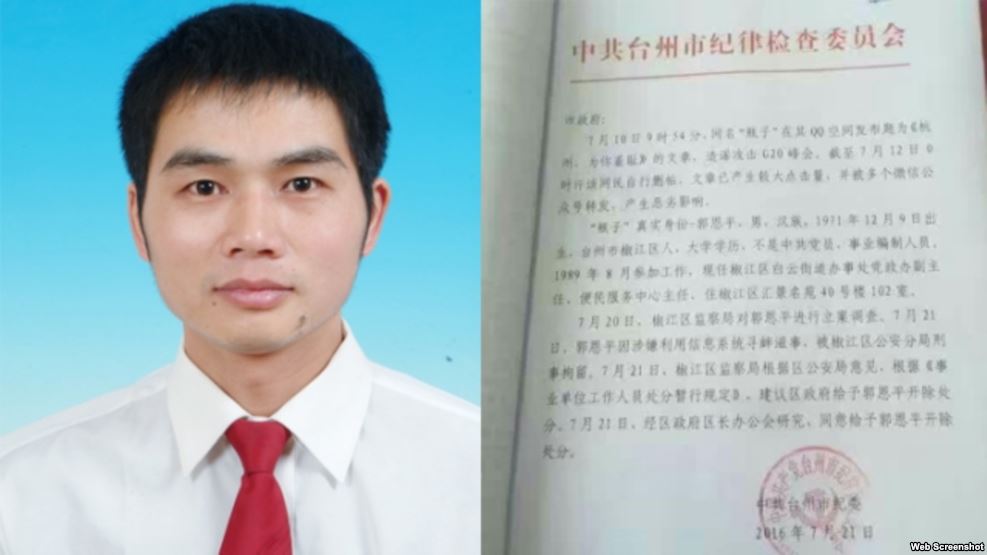 中共台州市纪律检查委员会
市政府:
7月10日9时54分,网名“瓶子”在其QQ空间发布题为《杭
州,为你羞耻》的文章,造谣攻击G20峰会。截至7月12日0
时许该网民自行删帖,文章已产生较大点击量,并被多个微信公
众号转发,产生恶劣影响。
“瓶子”真实身份-郭恩平,男,汉族,1971年12月9日出
生,台州市椒江区人,大学学历,不是中共党员,事业编制人员,
1989年8月参加工作,现任椒江区白云街道办事处党政办副主
任、便民服务中心主任,住椒江区汇景名苑40号楼102室。
7月20日,椒江区监察局对郭恩平进行立案调查。7月21
日,郭恩平因涉嫌利用信息系统寻衅滋事,被椒江区公安分局刑
事拘留。7月21日,椒江区监察局根据区公安局意见,根据《事
业单位工作人员处分暂行规定》,建议区政府给予郭恩平开除处
分。7月21日,经区政府区长办公会研究,同意给予郭恩平开除
处分。
中共台州市纪委
2016年7月21日
Web Screenshot